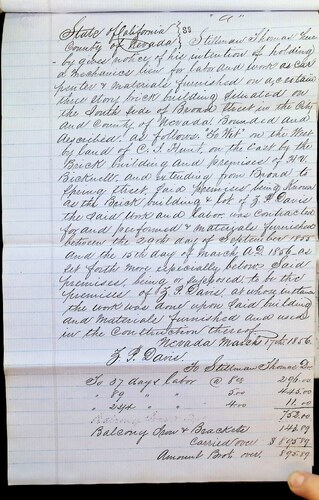 "A"
State of California
County of Nevada } SS Stillman Thomas here
by gives notice of his intention of holding
a mechanics lien for labor and work as car
penter & materials furnished on a certain
three story brick building situated on
the South side of Broad Street in the City
and County of Nevada Bounded and
described, as follows "To Wit" on the West
by land of C. F. on the East by the
Brick building and premises of H.
Bicknell, and extending from Broad to
Spring Street, Said premises being known
as the Brick building & lot of Z. P. Davis
the Said Work and labor was contracted
for and performed & materials furnished
between the 29th day of September 1855
And the 15th day of March A.D. 1856 as
set forth more especially below Said
premises, being or supposed to be the
premises of Z. P. Davis, at whose instance
the work was done upon said building
and Materials furnished and used
in the Construction thereof
Nevada March 17th 1856.
Z. P. Davis.
To Stillman Thomas Dr
To 37 days labor @ 8.00 296.00
" 89 " " 5.00 445.00
" 2 3/4 " " 4.00 11.00
752.00
Balcony Iron & Brackets
Carried over $ 895.89
Amount Brot over 895.89